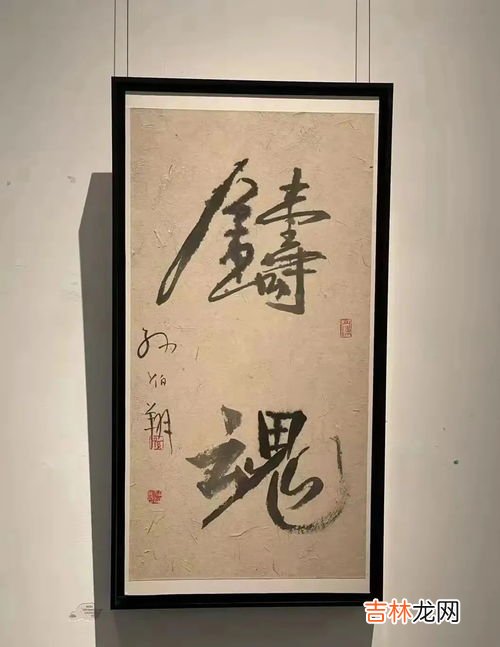 鑄
魂
孙伯翔
吉林龙网